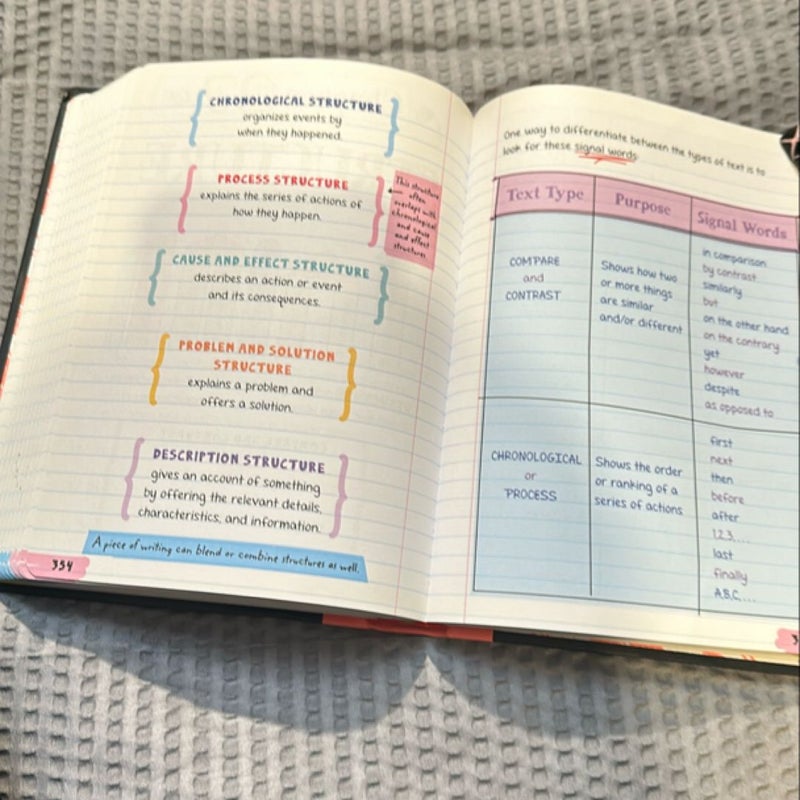 CHRONOLOGICAL STRUCTURE
organizes events by
when they happened.
PROCESS STRUCTURE
explains the series of actions of
how they happen.
This structure
often
overlaps with
chronological
and cause
and effect
structures.
CAUSE AND EFFECT STRUCTURE
describes an action or event
and its consequences.
PROBLEM AND SOLUTION
STRUCTURE
explains a problem and
offers a solution.
DESCRIPTION STRUCTURE
gives an account of something
by offering the relevant details,
characteristics, and information.
A piece of writing can blend or combine structures as well.
354
One way to differentiate between the types of text is to
look for these signal words:
Text Type
Purpose
Signal Words
COMPARE
and
CONTRAST
Shows how two
or more things
are similar
and/or different
in comparison
by contrast
similarly
but
on the other hand
on the contrary
yet
however
despite
as opposed to
CHRONOLOGICAL
or
PROCESS
Shows the order
or ranking of a
series of actions
first
next
then
before
after
1,2,3, . . .
last
finally
A,B,C, . . .